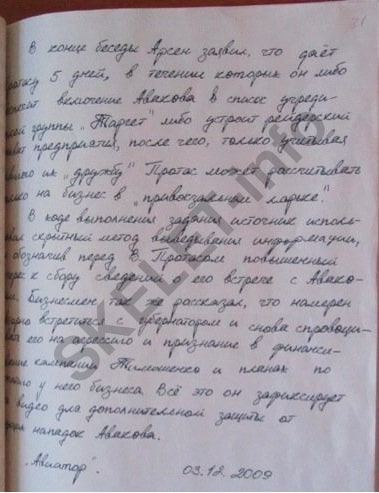 31
В конце беседы Арсен заявил, что даёт
Протасу 5 дней, в течении которых он либо
включение Авакова в список учреди-
группы „Таргет" либо устроит рейдерский
предприятия, после чего, только учитывая
их „дружбу" Протас может рассчитывать
на бизнес в „привокзальном ларьке".
В ходе выполнения задания источник исполь-
скрытный метод выведывания информации,
обозначив перед В. Протасом повышенный
к сбору сведений о его встрече с Авако-
Бизнесмен так же рассказал, что намерен
встретится с губернатором и снова спровоци-
его на агрессию и признание в финанси-
кампании Тимошенко и планах по
у него бизнеса. Всё это он зафиксирует
видео для дополнительной защиты от
нападок Авакова.
„Авиатор".
03.12.2009
SKELET.info